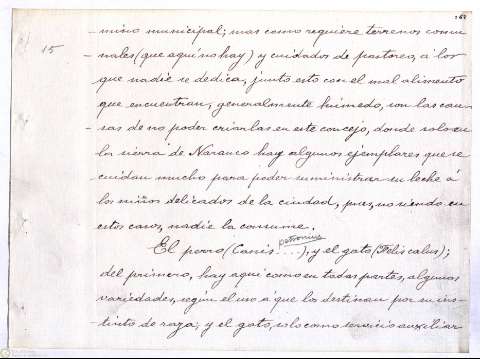 168
- mino municipal; mas como requiere terrenos comu-
15
- nales (que aquí no hay) y cuidados de pastoreo, á los
que nadie se dedica, junto esto con el mal alimento
que encuentran, generalmente húmedo, son las cau-
- sas de no poder criarlas en este concejo, donde solo en
la sierra de Naranco hay algunos ejemplares que se
cuidan mucho para poder suministrar su leche á
los niños delicados de la ciudad, pues, no siendo en
estos casos, nadie la consume.
El perro (Canis ....), y el gato (Felis catus);
del primero, hay aquí como en todas partes, algunas
variedades, segun el uso á que los destinan por su ins-
- tinto de raza; y el gato, solo como servicio auxiliar